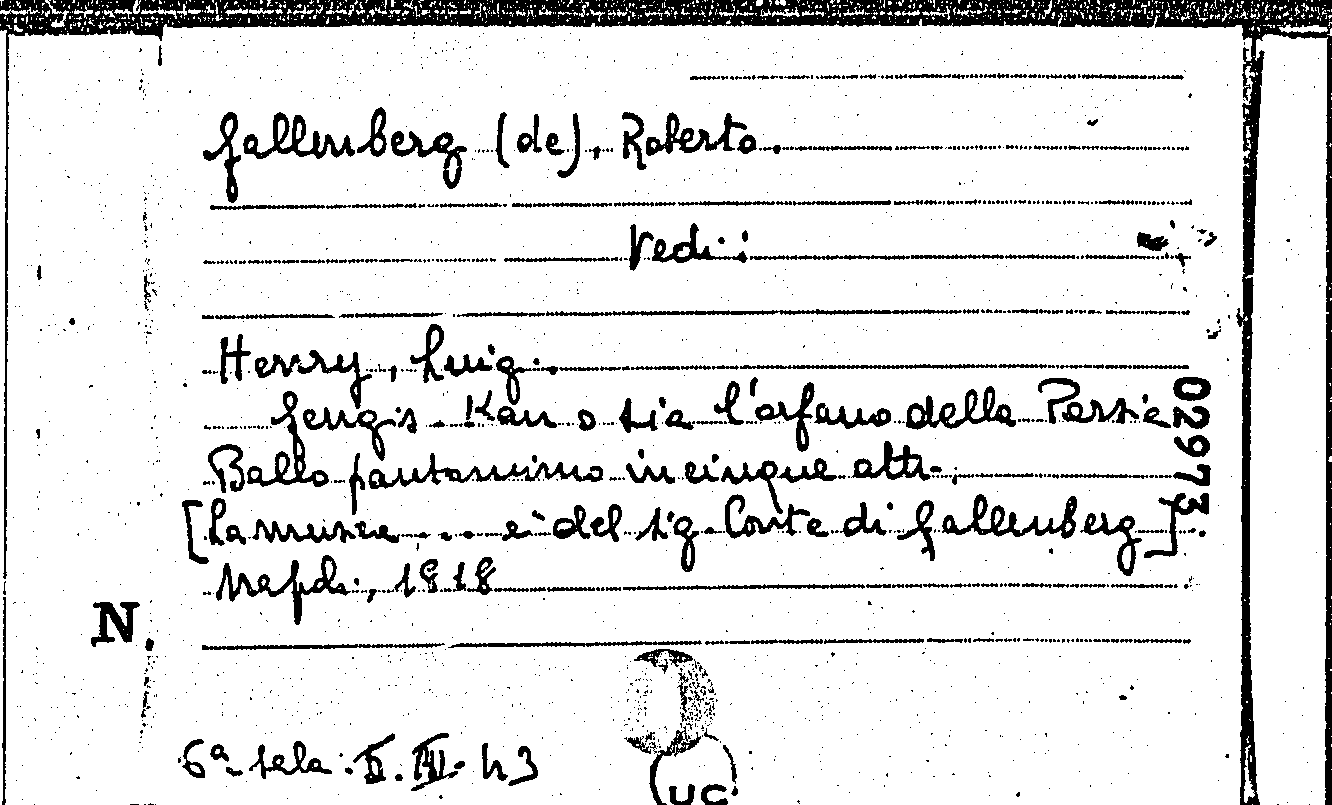 Gallenberg (de), Roberto.
Vedi:
Henry, Luigi.
Gengis. Kan o sia l'orfano della Persia
Ballo pantomimo in cinque atti.
[La musica ... è del sig. Conte di Gallenberg].
Napoli, 1818
02973
N.
6ª sala. II. III. 43
UC